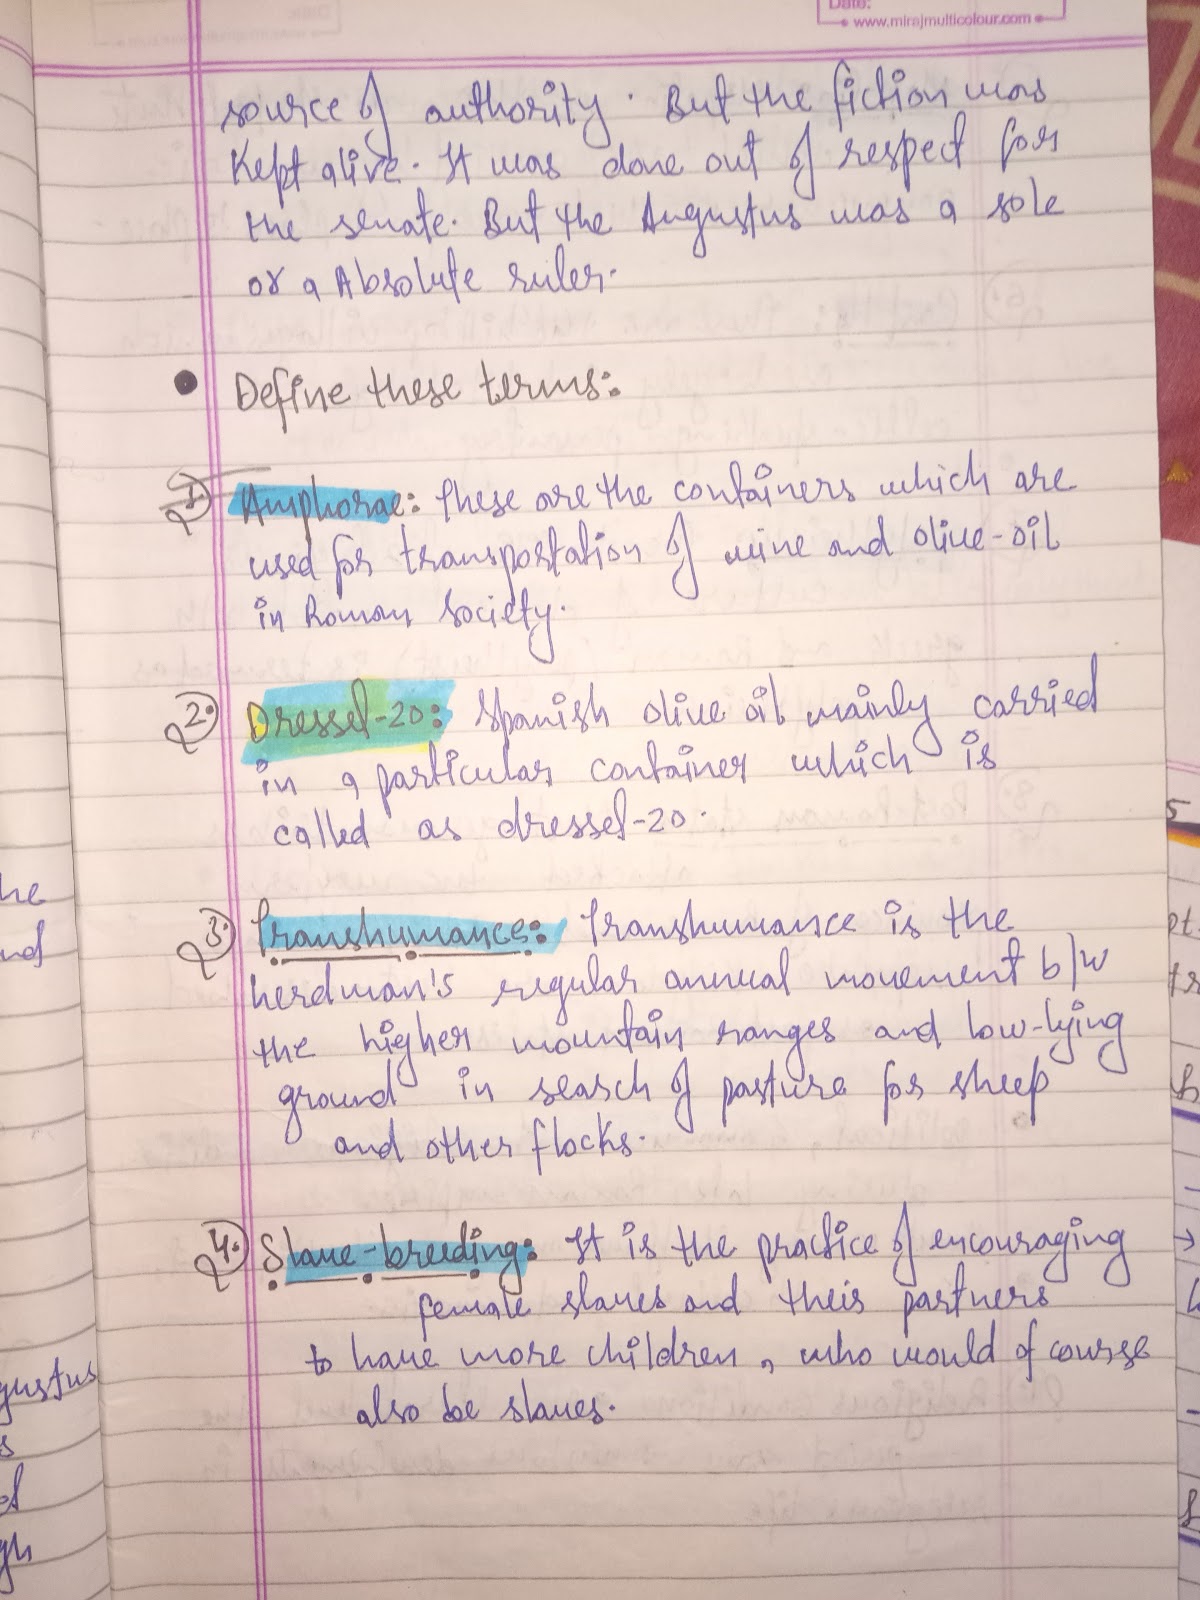 Date:
www.mirajmulticolour.com
source of authority. But the fiction was
Kept alive. It was done out of respect for
the senate. But the Augustus was a sole
or a Absolute ruler.
• Define these terms:
Q1. Amphorae: These are the containers which are
used for transportation of wine and olive-oil
in Roman society.
Q2. Dressel-20: Spanish olive oil mainly carried
in a particular container which is
called as dressel-20.
Q3. Transhumance: Transhumance is the
herdman's regular annual movement b/w
the higher mountain ranges and low-lying
ground in search of pasture for sheep
and other flocks.
Q4. Slave-breeding: It is the practice of encouraging
female slaves and their partners
to have more children, who would of course
also be slaves.